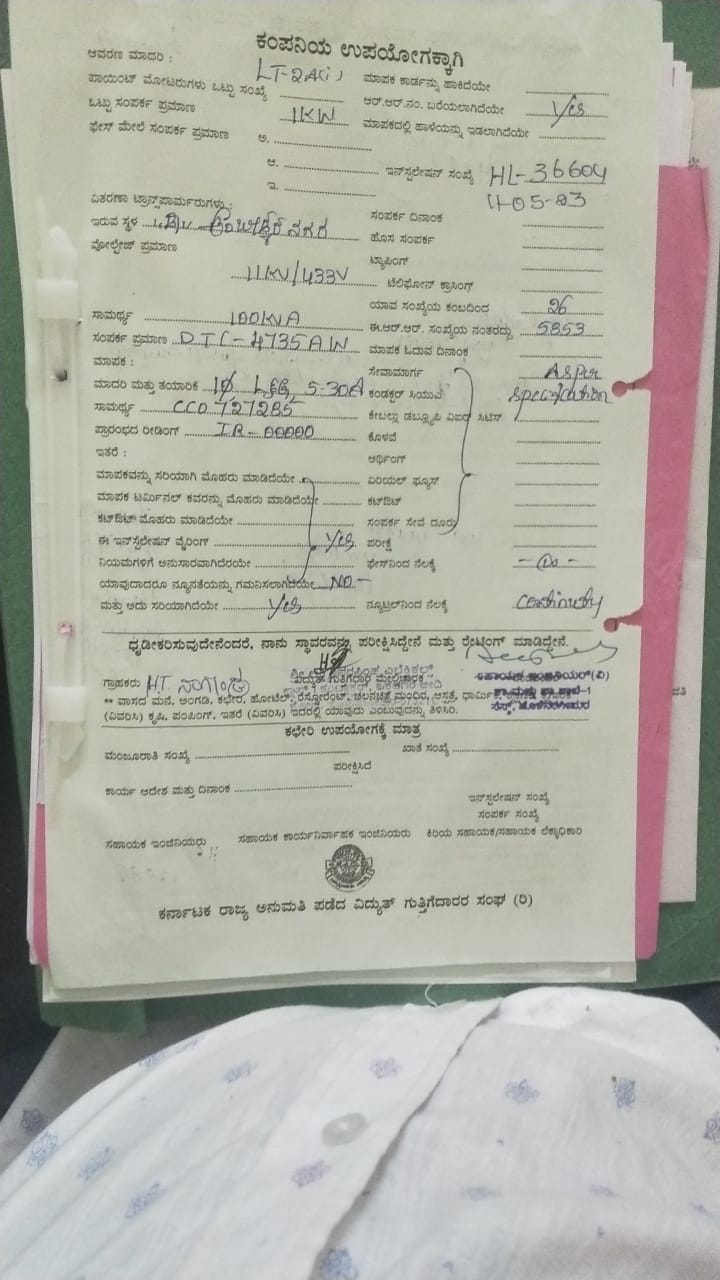 ಕಂಪನಿಯ ಉಪಯೋಗಕ್ಕಾಗಿ
ಆವರಣ ಮಾದರಿ : LT-2A(i) ಮಾಪಕ ಕಾರ್ಡನ್ನು ಹಾಕಿದೆಯೇ
ಪಾಯಿಂಟ್ ಮೋಟರುಗಳು ಒಟ್ಟು ಸಂಖ್ಯೆ ಆರ್.ಆರ್.ನಂ. ಬರೆಯಲಾಗಿದೆಯೇ Yes
ಒಟ್ಟು ಸಂಪರ್ಕ ಪ್ರಮಾಣ 1KW ಮಾಪಕದಲ್ಲಿ ಹಾಳೆಯನ್ನು ಇಡಲಾಗಿದೆಯೇ
ಫೇಸ್ ಮೇಲೆ ಸಂಪರ್ಕ ಪ್ರಮಾಣ ಅ.
ಆ. ಇನ್‌ಸ್ಟಲೇಷನ್ ಸಂಖ್ಯೆ HL-36604
ಇ.
ವಿತರಣಾ ಟ್ರಾನ್ಸ್‌ಫಾರ್ಮರುಗಳು : ಸಂಪರ್ಕ ದಿನಾಂಕ
ಇರುವ ಸ್ಥಳ ನಗರ ಹೊಸ ಸಂಪರ್ಕ
ವೋಲ್ಟೇಜ್ ಪ್ರಮಾಣ ಟ್ಯಾಪಿಂಗ್
11KV/433V ಟೆಲಿಫೋನ್ ಕ್ರಾಸಿಂಗ್
ಯಾವ ಸಂಖ್ಯೆಯ ಕಂಬದಿಂದ 26
ಸಾಮರ್ಥ್ಯ 100KVA ಈ.ಆರ್.ಆರ್. ಸಂಖ್ಯೆಯ ನಂತರದ್ದು 5853
ಸಂಪರ್ಕ ಪ್ರಮಾಣ DTC-4735AIN ಮಾಪಕ ಓದುವ ದಿನಾಂಕ
ಮಾಪಕ : ಸೇವಾಮಾರ್ಗ As per
ಮಾದರಿ ಮತ್ತು ತಯಾರಿಕೆ 1Ø L&G, 5-30A ಕಂಡಕ್ಟರ್ ಸಿಯುವೆ specification
ಸಾಮರ್ಥ್ಯ CCO 727285 ಕೇಬಲ್ಲು ಡಬ್ಲ್ಯೂಪಿ ವಿಐಆರ್
ಪ್ರಾರಂಭದ ರೀಡಿಂಗ್ IR-00000 ಕೊಳವೆ
ಇತರೆ : ಅರ್ಥಿಂಗ್
ಮಾಪಕವನ್ನು ಸರಿಯಾಗಿ ಮೊಹರು ಮಾಡಿದೆಯೇ ಏರಿಯಲ್ ಫ್ಯೂಸ್
ಮಾಪಕ ಟರ್ಮಿನಲ್ ಕವರನ್ನು ಮೊಹರು ಮಾಡಿದೆಯೇ ಕಟ್‌ಔಟ್
ಕಟ್‌ಔಟ್ ಮೊಹರು ಮಾಡಿದೆಯೇ ಸಂಪರ್ಕ ಸೇವೆ ದೂರು
ಈ ಇನ್‌ಸ್ಟಲೇಷನ್ ವೈರಿಂಗ್ Yes ಪರೀಕ್ಷೆ
ನಿಯಮಗಳಿಗೆ ಅನುಸಾರವಾಗಿದೆಯೇ ಫೇಸ್‌ನಿಂದ ನೆಲಕ್ಕೆ
ಯಾವುದಾದರೂ ನ್ಯೂನತೆಯನ್ನು ಗಮನಿಸಲಾಗಿದೆಯೇ NO-
ಮತ್ತು ಅದು ಸರಿಯಾಗಿದೆಯೇ Yes ನ್ಯೂಟ್ರಲ್‌ನಿಂದ ನೆಲಕ್ಕೆ continuity
ಧೃಡೀಕರಿಸುವುದೇನೆಂದರೆ, ನಾನು ಸ್ಥಾವರವನ್ನು ಪರೀಕ್ಷಿಸಿದ್ದೇನೆ ಮತ್ತು ರೇಟಿಂಗ್ ಮಾಡಿದ್ದೇನೆ.
ಗ್ರಾಹಕರು ವಿದ್ಯುತ್ ಗುತ್ತಿಗೆದಾರ ಮೇಲಿಚಾರಕ
** ವಾಸದ ಮನೆ, ಅಂಗಡಿ, ಕಛೇರಿ, ಹೋಟೆಲ್, ರೆಸ್ಟೋರೆಂಟ್, ಚಲನಚಿತ್ರ ಮಂದಿರ, ಆಸ್ಪತ್ರೆ,
(ವಿವರಿಸಿ) ಕೃಷಿ, ಪಂಪಿಂಗ್, ಇತರೆ (ವಿವರಿಸಿ) ಇದರಲ್ಲಿ ಯಾವುದು ಎಂಬುವುದನ್ನು ತಿಳಿಸಿರಿ.
ಕಛೇರಿ ಉಪಯೋಗಕ್ಕೆ ಮಾತ್ರ
ಮಂಜೂರಾತಿ ಸಂಖ್ಯೆ ಖಾತೆ ಸಂಖ್ಯೆ
ಪರೀಕ್ಷಿಸಿದೆ
ಕಾರ್ಯ ಆದೇಶ ಮತ್ತು ದಿನಾಂಕ
ಇನ್‌ಸ್ಟಲೇಷನ್ ಸಂಖ್ಯೆ
ಸಂಪರ್ಕ ಸಂಖ್ಯೆ
ಸಹಾಯಕ ಇಂಜಿನಿಯರ್ರು ಸಹಾಯಕ ಕಾರ್ಯನಿರ್ವಾಹಕ ಇಂಜಿನಿಯರು ಕಿರಿಯ ಸಹಾಯಕ/ಸಹಾಯಕ ಲೆಕ್ಕಾಧಿಕಾರಿ
ಕರ್ನಾಟಕ ರಾಜ್ಯ ಅನುಮತಿ ಪಡೆದ ವಿದ್ಯುತ್ ಗುತ್ತಿಗೆದಾರರ ಸಂಘ (ರಿ)